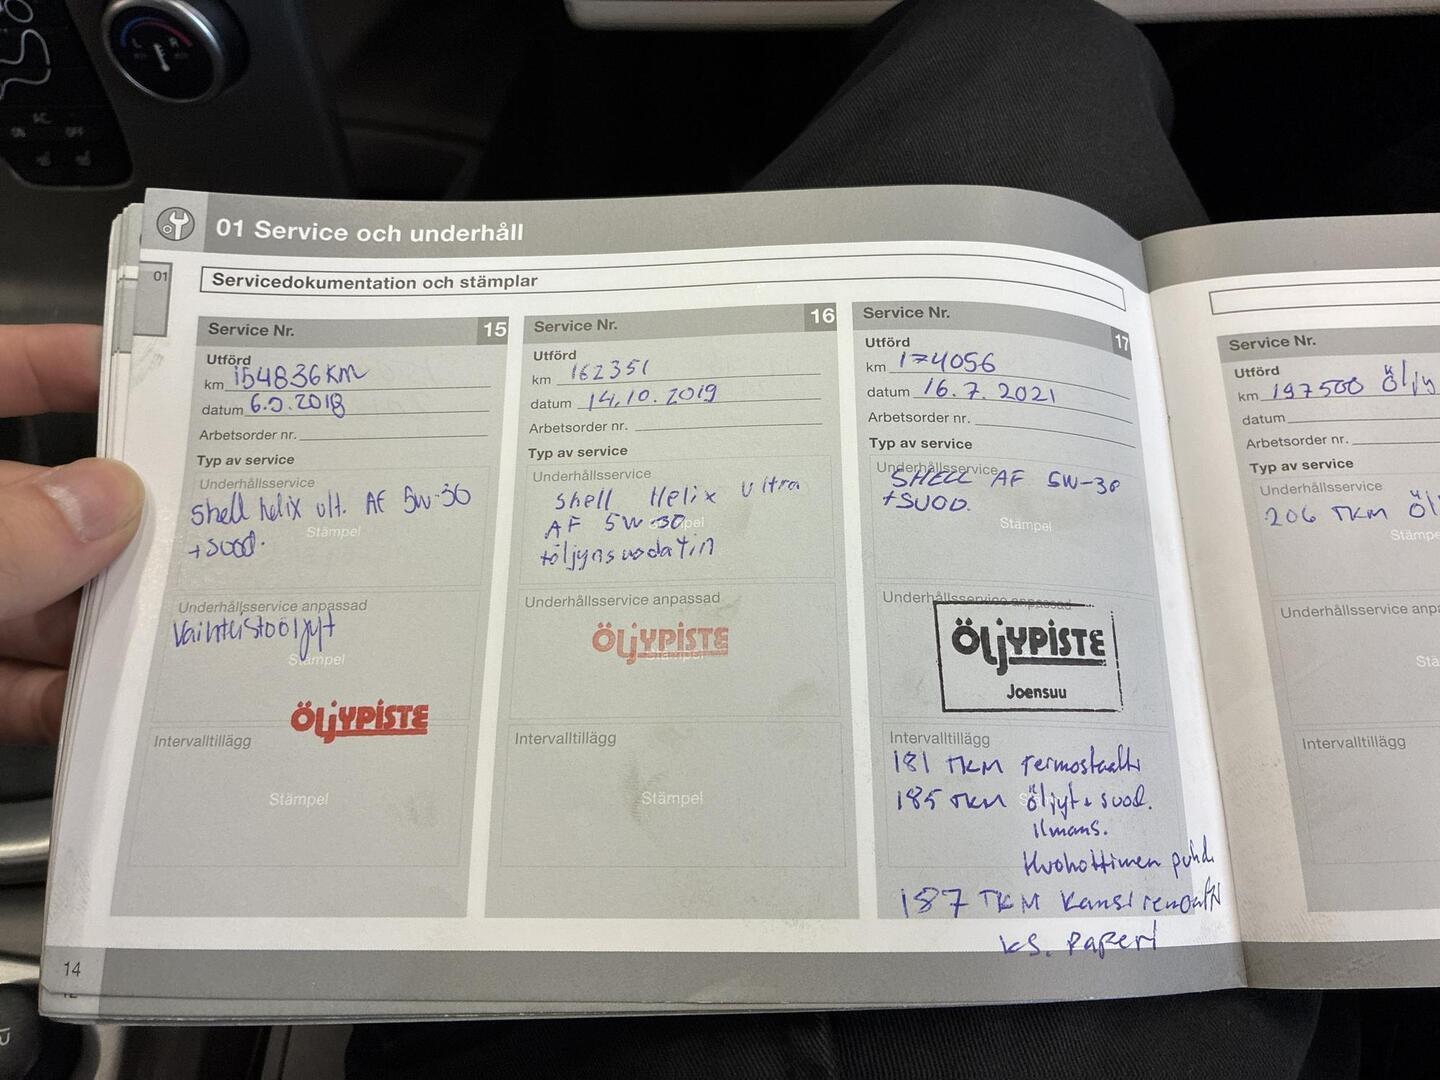 L R
AC
ON OFF
01 Service och underhåll
01
Servicedokumentation och stämplar
Service Nr. 15
Utförd
km 154836KM
datum 6.9.2018
Arbetsorder nr.
Typ av service
Underhållsservice
Shell helix ult. AF 5W-30
Stämpel
+ suod.
Underhållsservice anpassad
Vaihteistoöljyt
Stämpel
ÖLJYPISTE
Intervalltillägg
Stämpel
Service Nr. 16
Utförd
km 162351
datum 14.10.2019
Arbetsorder nr.
Typ av service
Underhållsservice
Shell Helix Ultra
AF 5W-30
Stämpel
+öljynsuodatin
Underhållsservice anpassad
ÖLJYPISTE
Stämpel
Intervalltillägg
Stämpel
Service Nr. 17
Utförd
km 174056
datum 16.7.2021
Arbetsorder nr.
Typ av service
Underhållsservice
SHELL AF 5W-30
+SUOD.
Stämpel
Underhållsservice anpassad
ÖLJYPISTE
Joensuu
Intervalltillägg
181 TKM Termostaatti
185 TKM öljyt + suod.
ilmans.
Huohottimen puhd.
187 TKM Kansiremontti
ks. Paperi
14
Service Nr.
Utförd
km 197500 Öljy
datum
Arbetsorder nr.
Typ av service
Underhållsservice
206 TKM Öl
Stämpe
Underhållsservice anpa
Stä
Intervalltillägg